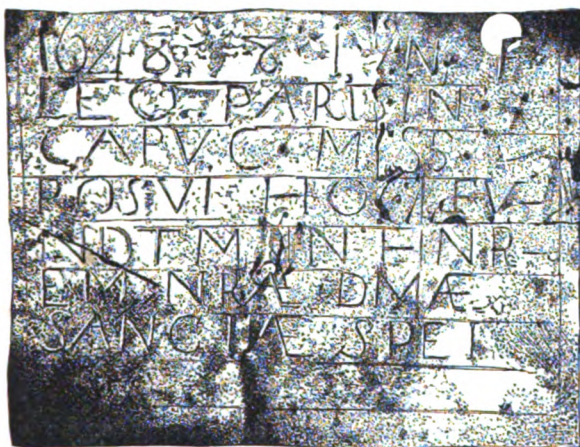 1648 8 IVN F
LEO PARISIN
CAPVC MISS
POSVI HOC FV-
NDTM IN HNR-
EM NRÆ DMÆ
SANCTÆ SPEI